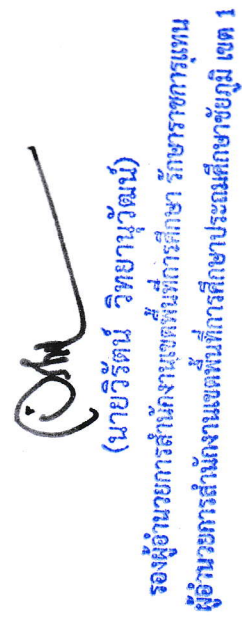 (นายวิรัตน์ วิทยานุวัฒน์)
รองผู้อำนวยการสำนักงานเขตพื้นที่การศึกษา รักษาราชการแทน
ผู้อำนวยการสำนักงานเขตพื้นที่การศึกษาประถมศึกษาชัยภูมิ เขต 1